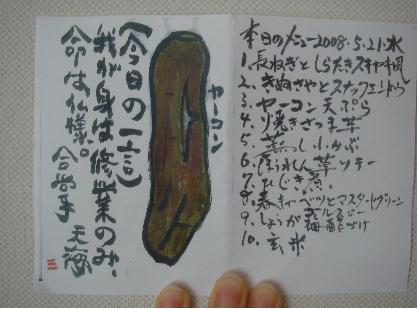 本日のメニュー2008.5.21.水
1. 長ねぎとしらたきスキヤキ風
2. きぬさやとスナックエンドウ
3. ヤーコン天ぷら
4. 焼きさつま芋
5. 蒸し小かぶ
6. ほうれん草ソテー
7. ひじき煮
8. 春キャベツとマスタードグリーン
9. しょうが 梅酢づけ
10. 玄米
ヤーコン
(今日の一言)
我が身は修業のみ、
命は仏様、合掌